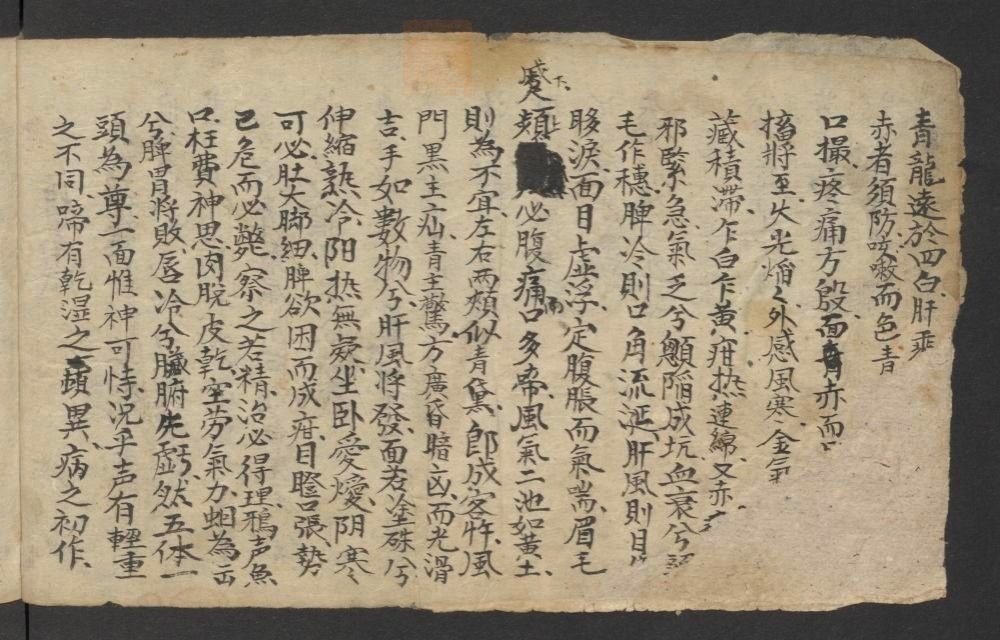 青龍遠於四白肝乘
赤者須防咳嗽而色青
口撮疼痛方殷面青赤而
搐將至火光焰々外感風寒金氣
藏積滯乍白乍黄疳热連綿又赤
邪緊急氣乏兮顖陷成坑血衰兮
毛作穗脾冷則口角流涎肝風則目
眵淚面目虚浮定腹脹而氣喘眉毛
頻蹙下必腹痛而口多啼風氣二池如黄土
則為不宜左右两頬似青黛即成客忤風
門黒主疝青主驚方廣昏暗凶而光滑
吉手如數物兮肝風将發面若塗硃兮
伸縮热冷阳热無疑坐卧愛煖阴寒
可必肚大脚細脾欲困而成疳目瞪口張勢
已危而必斃察之若精治必得理鴉声魚
口枉費神思肉脱皮乾空劳氣力蛔為
兮脾胃将敗唇冷兮臟腑先虧然五体一
頭為尊一面惟神可恃况乎声有輕重
之不同啼有乾湿之頻異病之初作